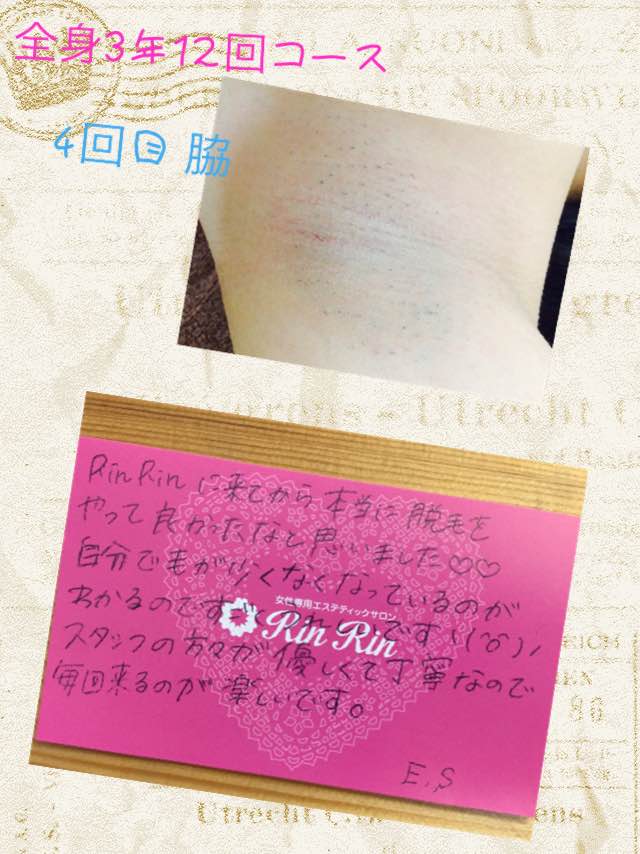 全身3年12回コース
4回目 脇
RinRinに来てから本当に脱毛を
やって良かったなと思いました♡♡
自分で毛が少くなくなっているのが
わかるのですっ れしいです ヽ(^o^)ノ
女性専用エステティックサロン
Rin Rin
スタッフの方々が優しくて丁寧なので
毎回来るのが楽しいです。
E.S
Utrecht